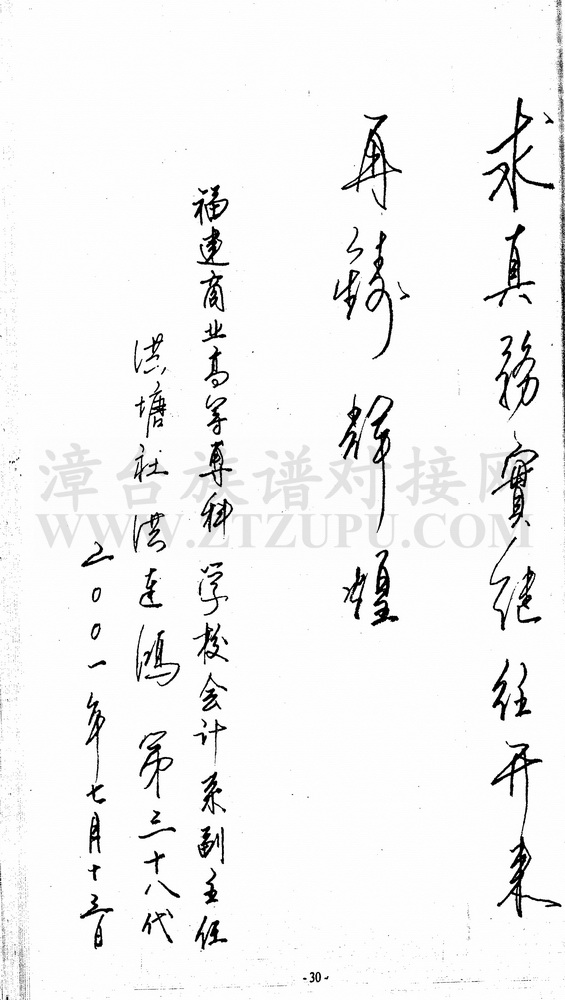 求真務實继往开来
再鑄辉煌
福建商业高等專科学校会计系副主任
洪塘社洪连鴻 第三十八代
二00一年七月十三日
漳台族谱对接网
WWW.ZTZUPU.COM
- 30 -